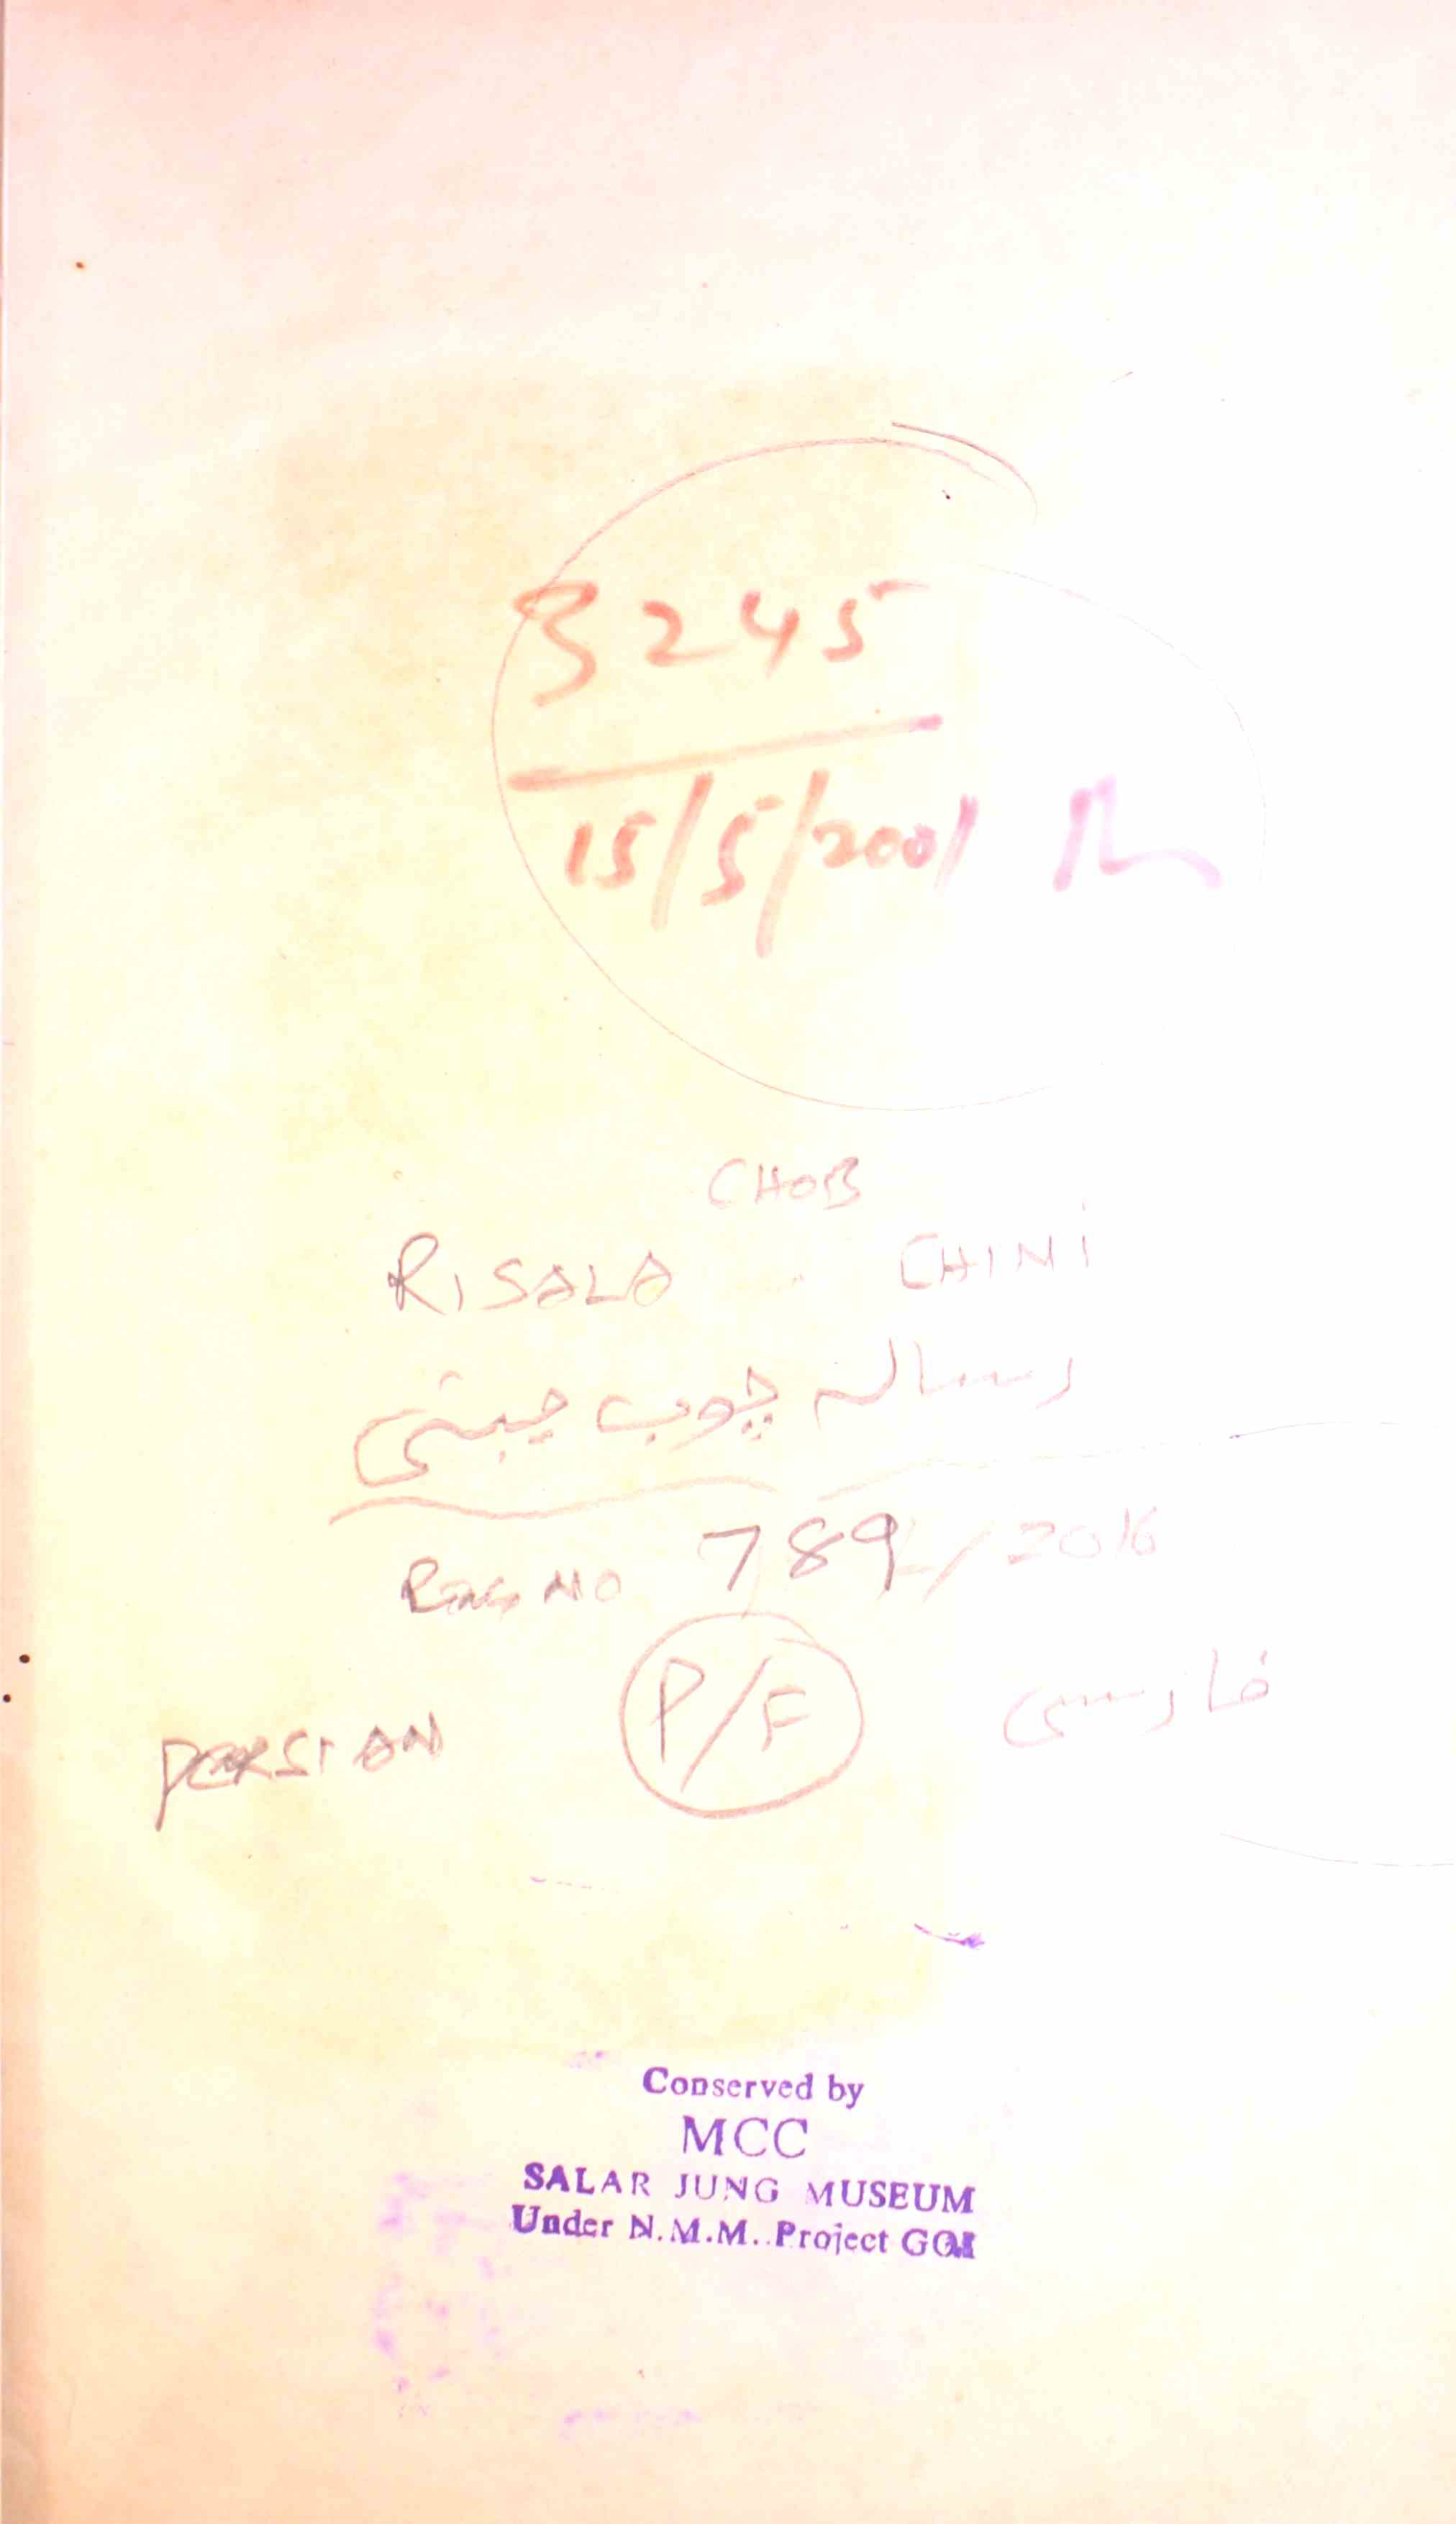 3245
15/5/2001
CHOB
RISALA CHINI
رسالہ چوب چینی
REG NO 789/2016
P/F
PERSIAN فارسی
Conserved by
MCC
SALAR JUNG MUSEUM
Under N.M.M. Project GOI